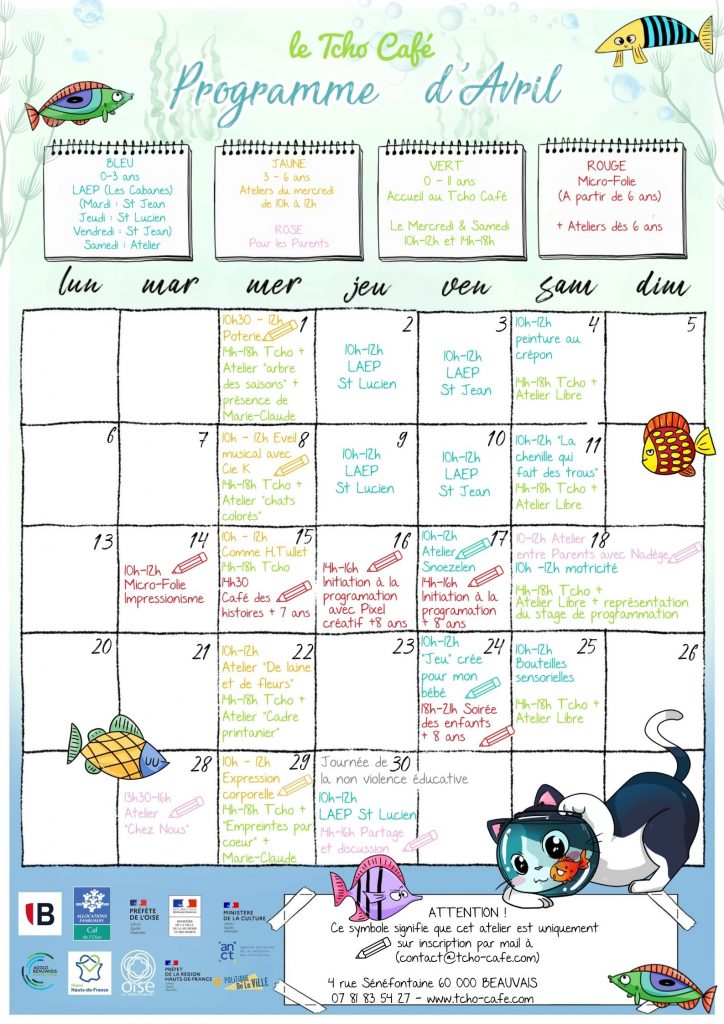 le Tcho Café
Programme d'Avril
BLEU
0-3 ans
LAEP (Les Cabanes)
(Mardi : St Jean
Jeudi : St Lucien
Vendredi : St Jean)
Samedi : Atelier
JAUNE
3 - 6 ans
Ateliers du mercredi
de 10h à 12h
ROSE
Pour les Parents
VERT
0 - 11 ans
Accueil au Tcho Café
Le Mercredi & Samedi
10h-12h et 14h-18h
ROUGE
Micro-Folie
(A partir de 6 ans)
+ Ateliers dès 6 ans
lun mar mer jeu ven sam dim
1
10h30 - 12h
Poterie
14h-18h Tcho +
Atelier "arbre
des saisons" +
présence de
Marie-Claude
2
10h-12h
LAEP
St Lucien
3
10h-12h
LAEP
St Jean
4
10h-12h
peinture au
crépon
14h-18h Tcho +
Atelier Libre
5
6
7
8
10h - 12h Eveil
musical avec
Cie K
14h-18h Tcho +
Atelier "chats
colorés"
9
10h-12h
LAEP
St Lucien
10
10h-12h
LAEP
St Jean
11
10h-12h "La
chenille qui
fait des trous"
14h-18h Tcho +
Atelier Libre
13
14
10h-12h
Micro-Folie
Impressionisme
15
10h - 12h
Comme H.Tullet
14h-18h Tcho
14h30
Café des
histoires + 7 ans
16
14h-16h
Initiation à la
programation
avec Pixel
créatif +8 ans
17
10h-12h
Atelier
Snoezelen
14h-16h
Initiation à la
programmation
+ 8 ans
18
10-12h Atelier
entre Parents avec Nadège
10h -12h motricité
14h-18h Tcho +
Atelier Libre + représentation
du stage de programmation
20
21
22
10h-12h
Atelier "De laine
et de fleurs"
14h-18h Tcho +
Atelier "Cadre
printanier"
23
24
10h-12h
"Jeu" crée
pour mon
bébé
18h-21h Soirée
des enfants
+ 8 ans
25
10h-12h
Bouteilles
sensorielles
14h-18h Tcho +
Atelier Libre
26
28
13h30-16h
Atelier
"Chez Nous"
29
10h - 12h
Expression
corporelle
14h-18h Tcho +
"Empreintes par
coeur" +
Marie-Claude
30
Journée de
la non violence éducative
10h-12h
LAEP St Lucien
14h-16h Partage
et discussion
B
ALLOCATIONS
FAMILIALES
Caf
de l'Oise
PRÉFÈTE
DE L'OISE
MINISTÈRE
DE LA CULTURE
anct
AGGLO
BEAUVAIS
Hauts-de-France
OISE
LE DÉPARTEMENT
PRÉFET
DE LA RÉGION
HAUTS-DE-FRANCE
POLITIQUE
De La ViLLE
ATTENTION !
Ce symbole signifie que cet atelier est uniquement
sur inscription par mail à
(contact@tcho-cafe.com)
4 rue Sénéfontaine 60 000 BEAUVAIS
07 81 83 54 27 - www.tcho-cafe.com